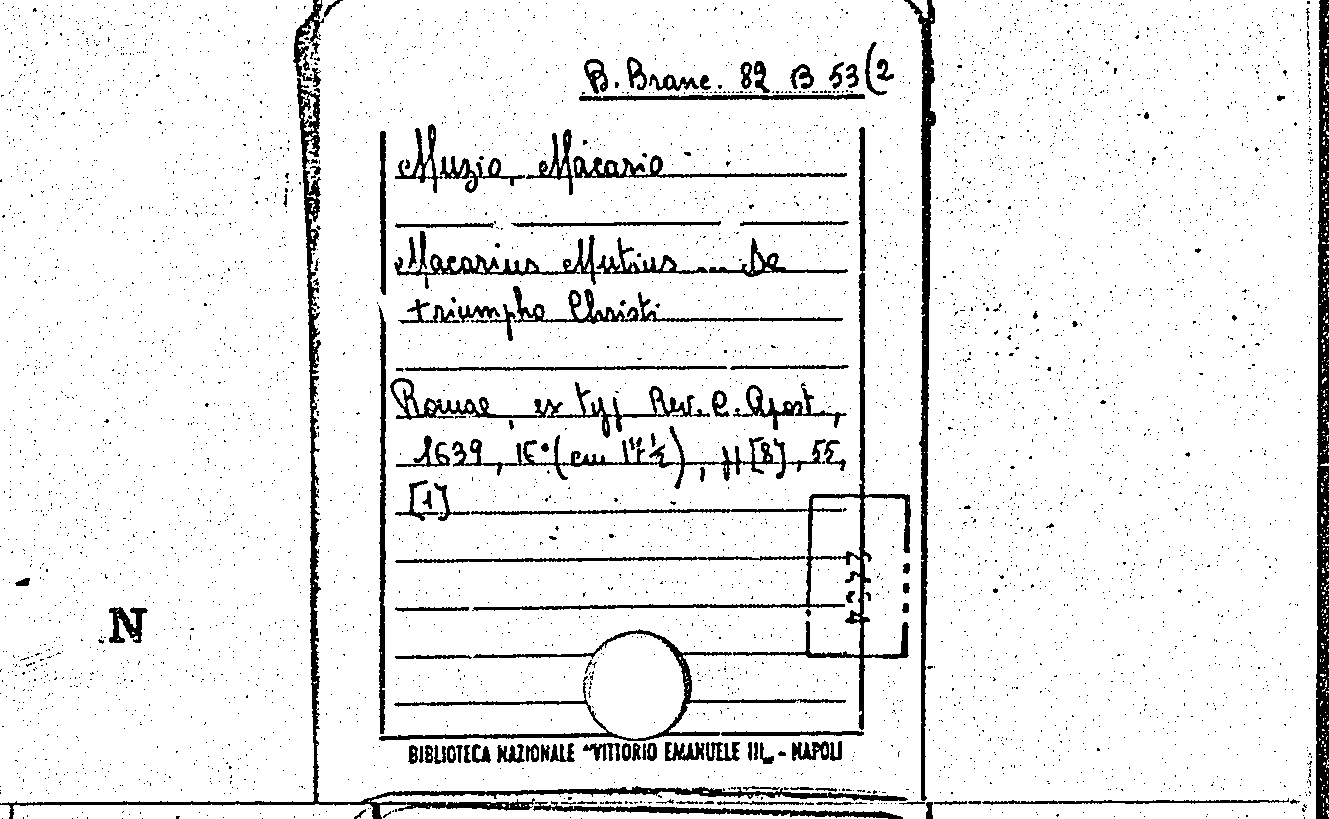 B. Branc. 82 B 53(2
Muzio, Macario
Macarius Mutius ... De
triumpho Christi
Romae, ex typ. Rev. C. Apost.,
1639, 16° (cm 17 ½), pp [8], 55,
[1]
N
BIBLIOTECA NAZIONALE "VITTORIO EMANUELE III„ - NAPOLI